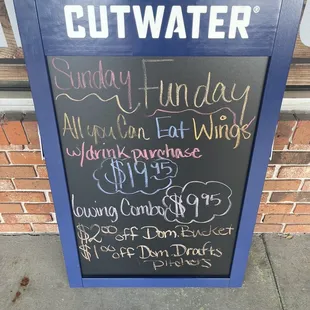 CUTWATER
Sunday Funday
All you Can Eat Wings
w/drink purchase
$19.45
Combo $9.95
$2.00 off Dom. Bucket
$1.00 off Dom. Drafts
Pitchers